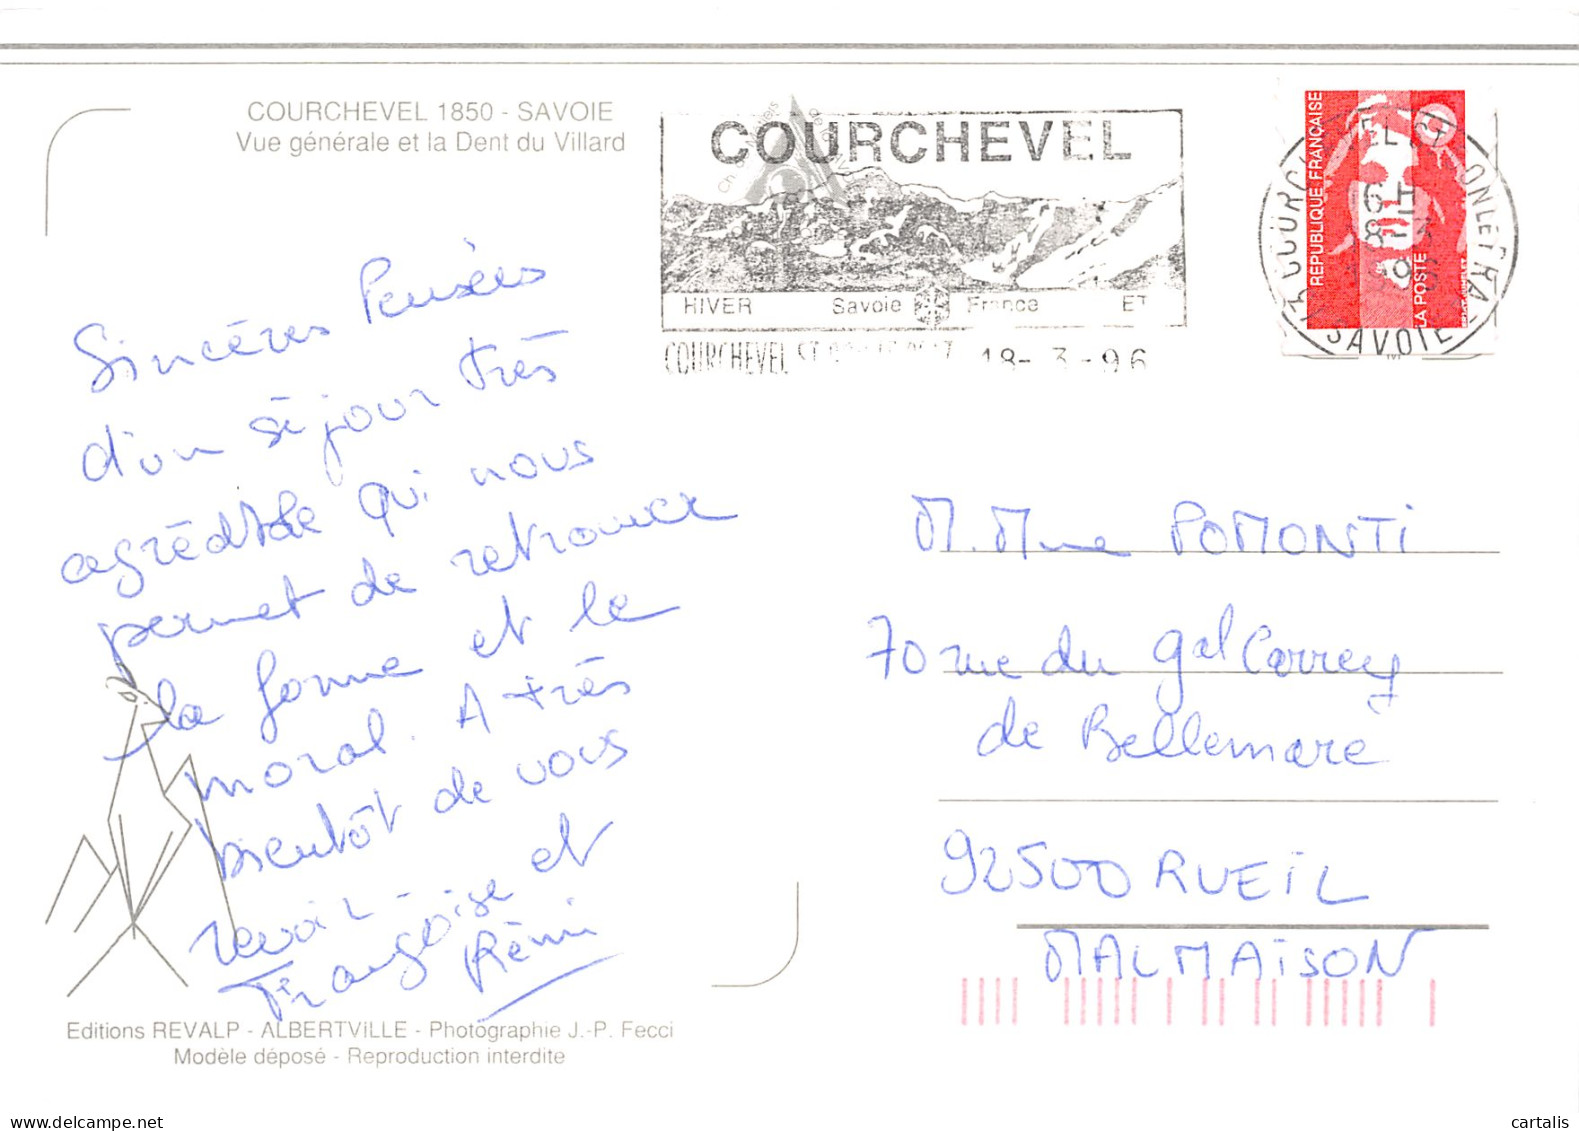 COURCHEVEL 1850 - SAVOIE
Vue générale et la Dent du Villard
COURCHEVEL
HIVER Savoie France ET
COURCHEVEL ST 18-3-96
RÉPUBLIQUE FRANÇAISE
LA POSTE
SAVOIE
Sincères Pensées
d'un séjour très
agréable qui nous
permet de retrouver
la forme et le
moral. A très
bientôt de vous
revoir -
Françoise et
Rémi
M. Mme POMONTI
70 rue du gal Carrey
de Bellemare
92500 RUEIL
MALMAISON
Editions REVALP - ALBERTVILLE - Photographie J.-P. Fecci
Modèle déposé - Reproduction interdite
cartalis
delcampe.net